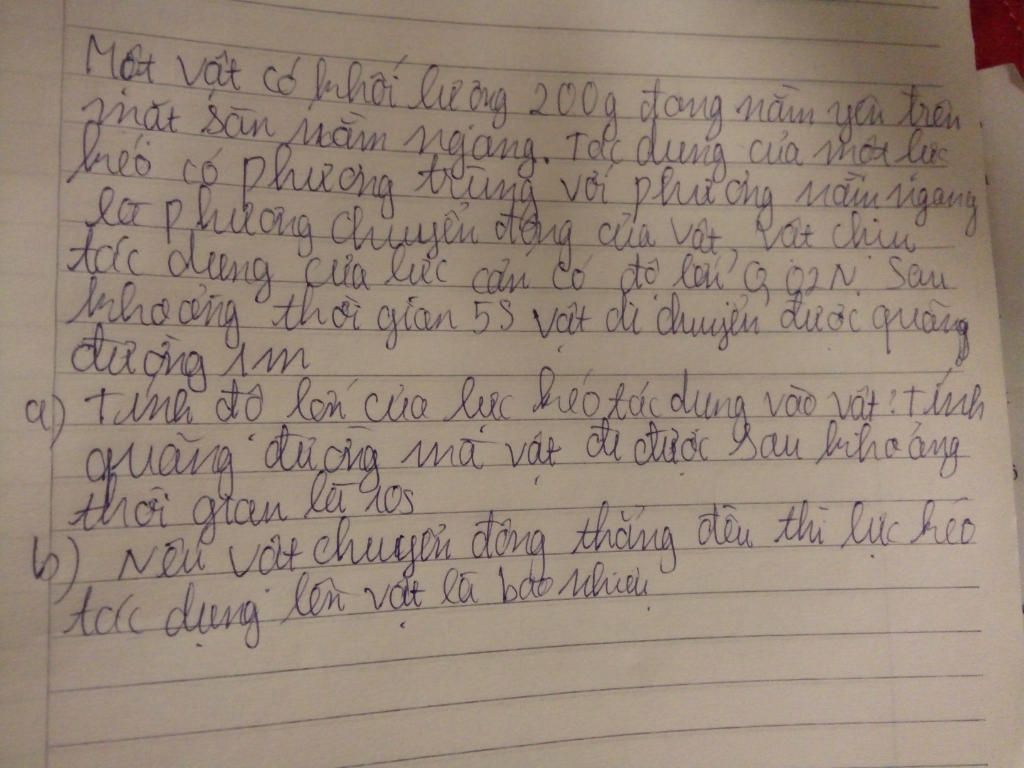 Một vật có khối lượng 200g đang nằm yên trên
mặt sàn nằm ngang. Tác dụng của một lực
kéo có phương trùng với phương nằm ngang
là phương chuyển động của vật, vật chịu
tác dụng của lực cản có độ lớn 0,02N. Sau
khoảng thời gian 5s vật di chuyển được quãng
đường 1m
a) Tính độ lớn của lực kéo tác dụng vào vật: Tính
quãng đường mà vật đi được sau khoảng
thời gian là 10s
b) Nếu vật chuyển động thẳng đều thì lực kéo
tác dụng lên vật là bao nhiêu